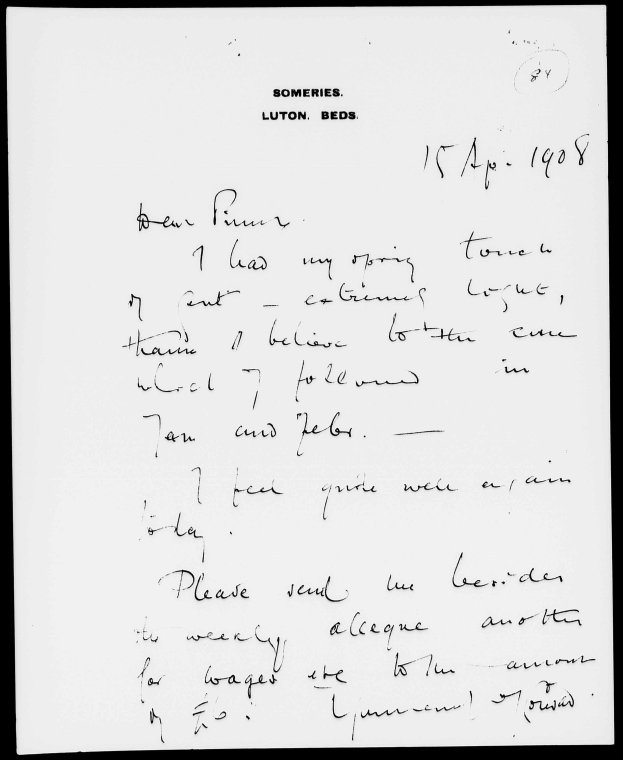 84
SOMERIES.
LUTON. BEDS.
15 Ap. 1908
Dear
I had my sprig touch
of gout – extremely light,
thanks I believe to the cure
which I followed in
Jan and Febr. —
I feel quite well again
today.
Please send me besides
the weekly cheque another
for wages etc to the amount
of £6.